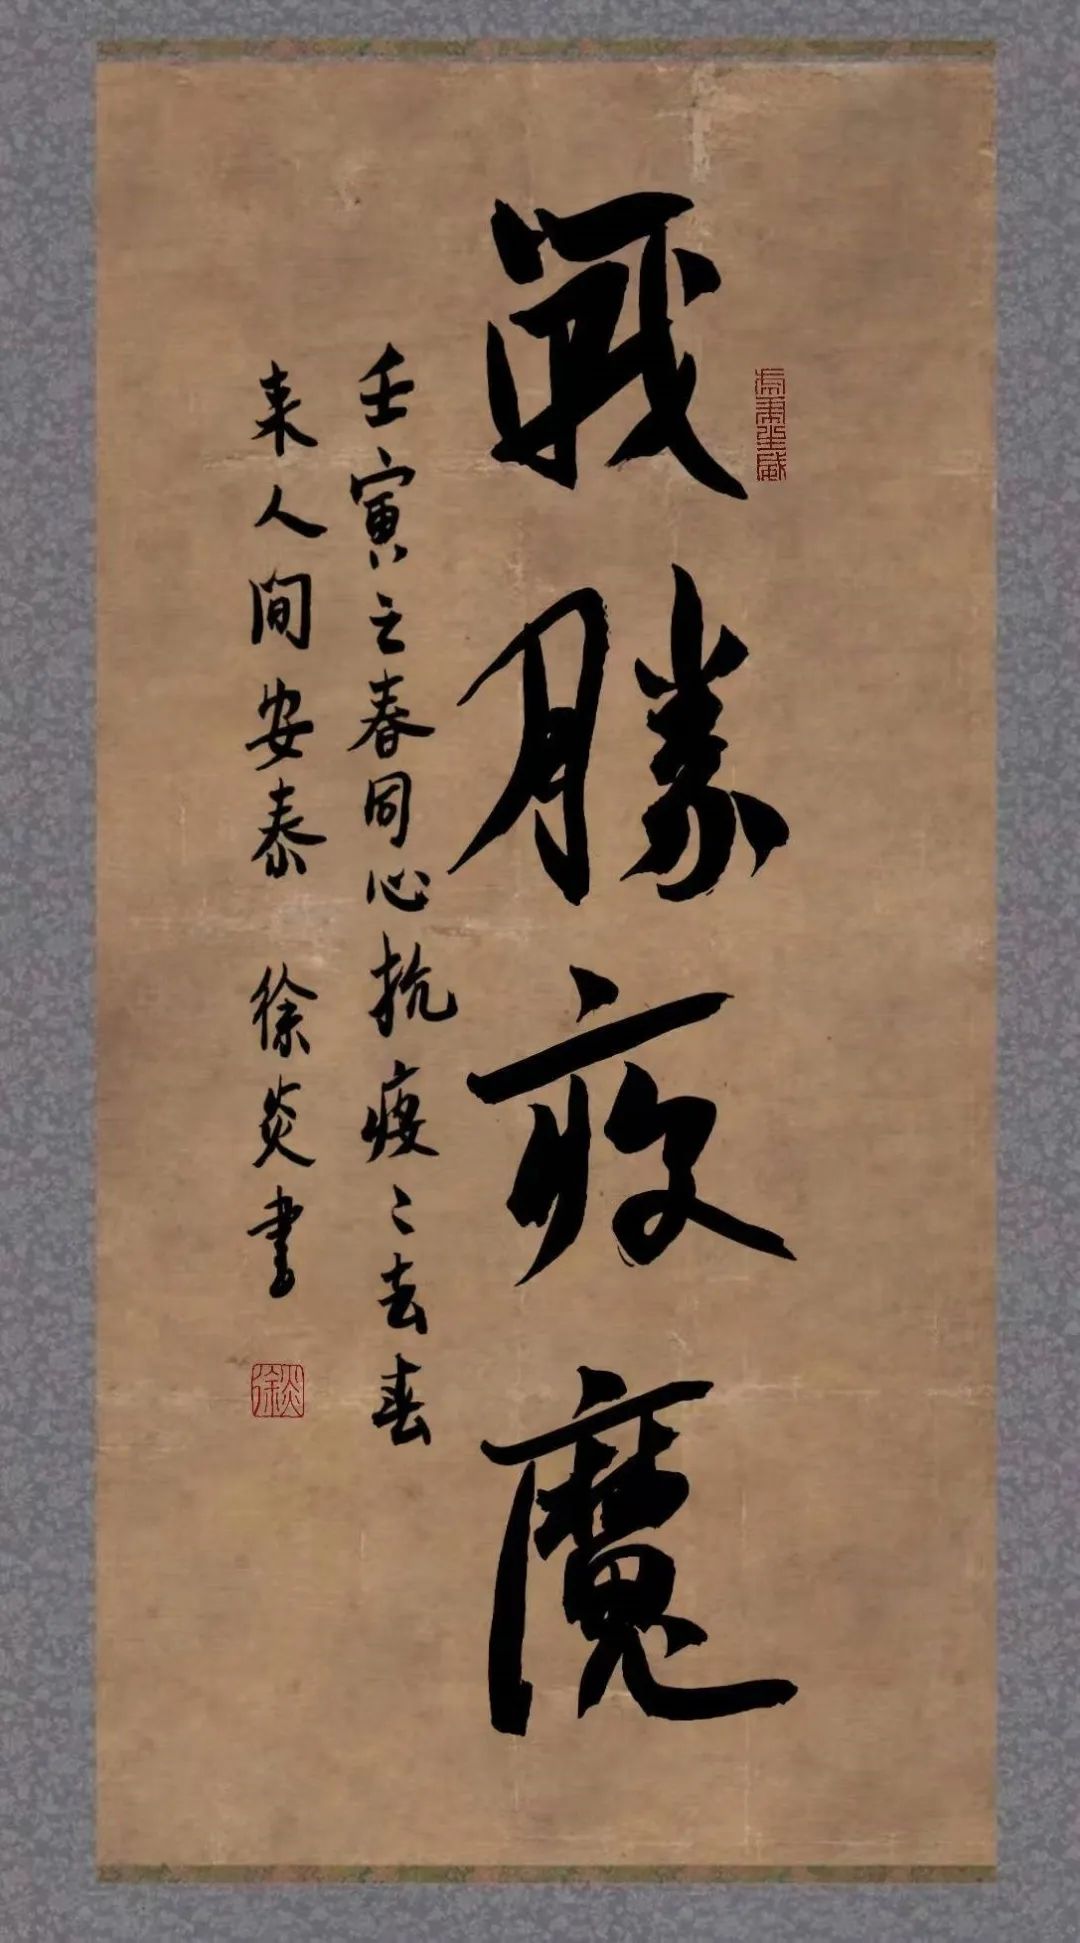 戰勝疫魔
壬寅之春同心抗疫〻去春
来人间安泰 徐炎書
徐炎